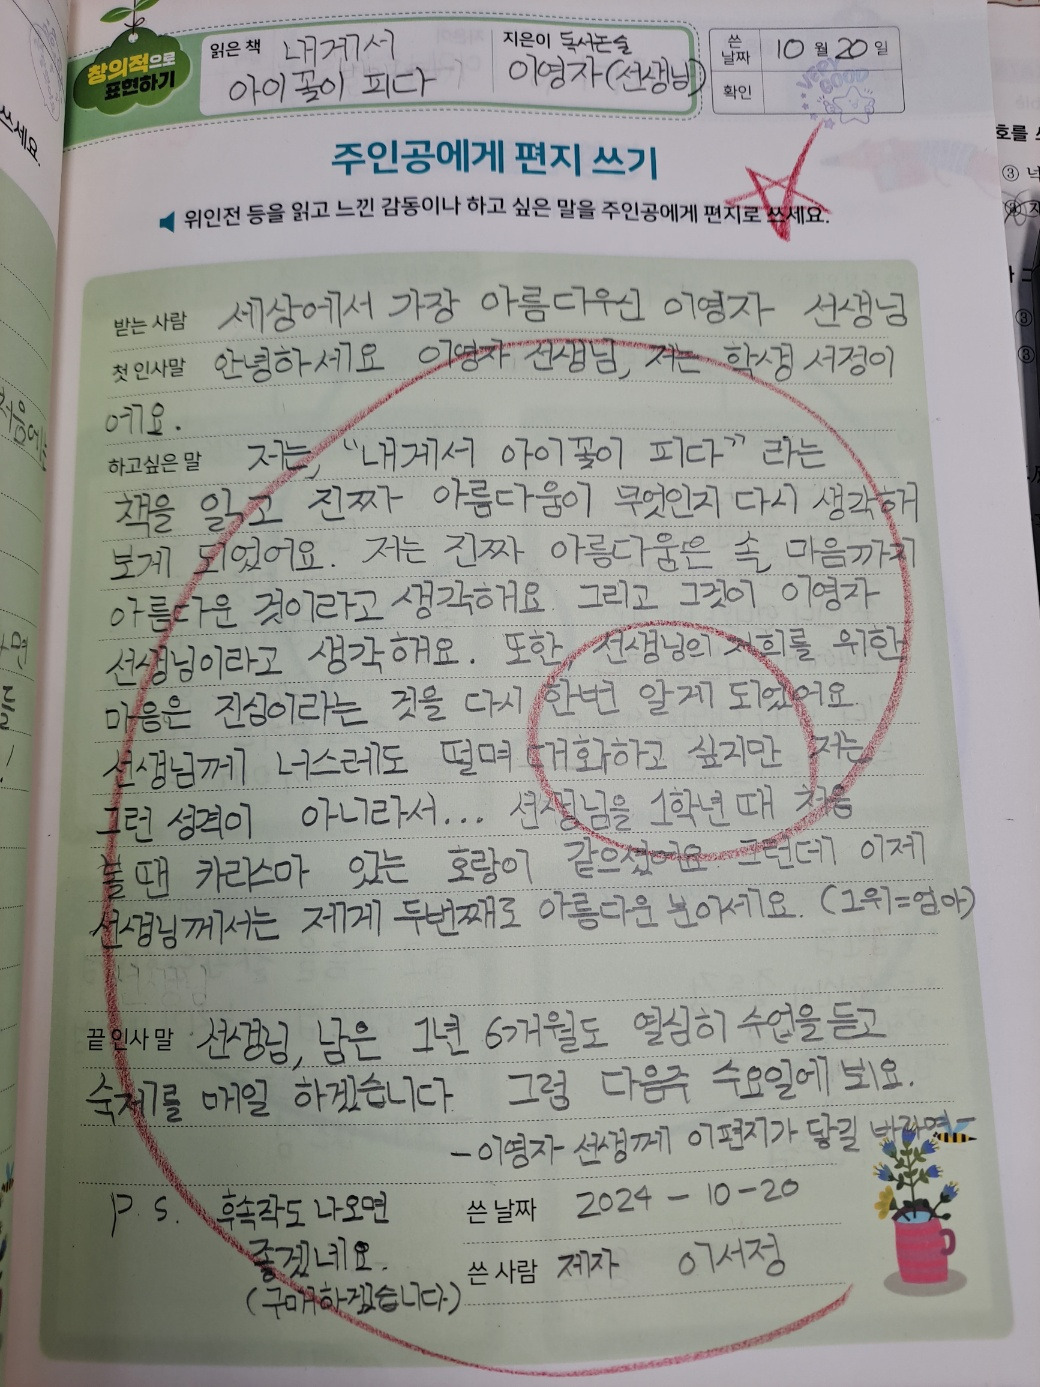 창의적으로
표현하기
읽은 책 내게서
아이꽃이 피다
지은이 독서논술
이영자(선생님)
쓴 날짜 10월 20일
확인
VERY GOOD
주인공에게 편지 쓰기
위인전 등을 읽고 느낀 감동이나 하고 싶은 말을 주인공에게 편지로 쓰세요.
받는 사람 세상에서 가장 아름다우신 이영자 선생님
첫 인사말 안녕하세요 이영자 선생님, 저는 학생 서정이
에요.
하고싶은 말 저는, "내게서 아이꽃이 피다" 라는
책을 읽고 진짜 아름다움이 무엇인지 다시 생각해
보게 되었어요. 저는 진짜 아름다움은 속, 마음까지
아름다운 것이라고 생각해요. 그리고 그것이 이영자
선생님이라고 생각해요. 또한, 선생님의 저희를 위한
마음은 진심이라는 것을 다시 한번 알게 되었어요.
선생님께 너스레도 떨며 대화하고 싶지만 저는
그런 성격이 아니라서... 선생님을 1학년 때 처음
볼 땐 카리스마 있는 호랑이 같으셨어요. 그런데 이제
선생님께서는 제게 두번째로 아름다운 분이세요. (1위=엄마)
끝 인사 말 선생님, 남은 1년 6개월도 열심히 수업을 듣고
숙제를 매일 하겠습니다. 그럼 다음주 수요일에 봬요.
-이영자 선생께 이편지가 닿길 바라며-
P.S. 후속작도 나오면
좋겠네요.
(구매하겠습니다)
쓴 날짜 2024-10-20
쓴 사람 제자 이서정